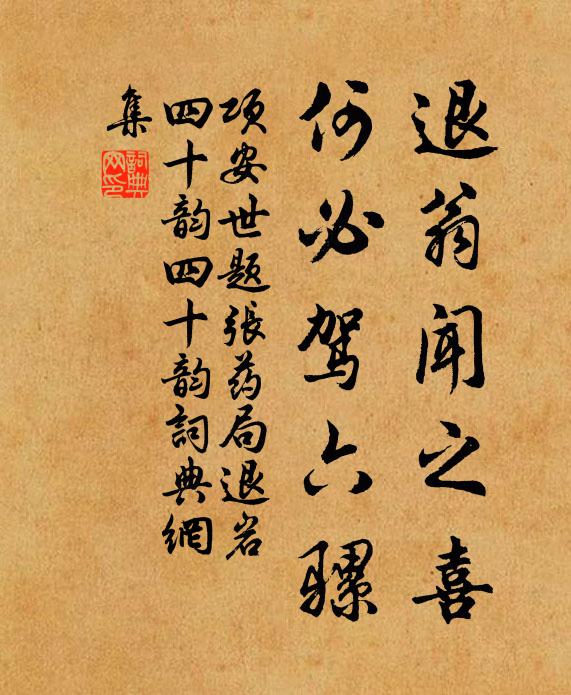 退翁闻之喜
何必驾六骡
项安世题张药局退岩
四十韵四十韵詞典網
集
詞典
网印